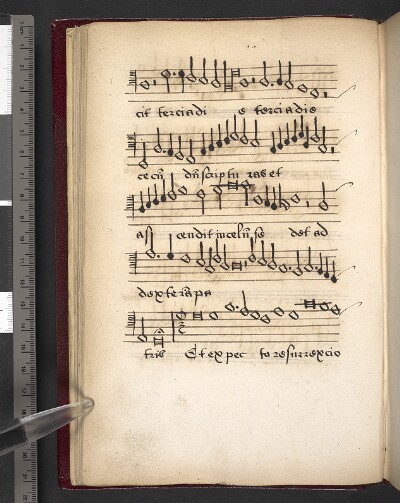 cit tercia di e tercia die
cecū dū scriptu ras et
asſ cendit in celū se det ad
dexterā pa
tris Et expec to resurrexcio